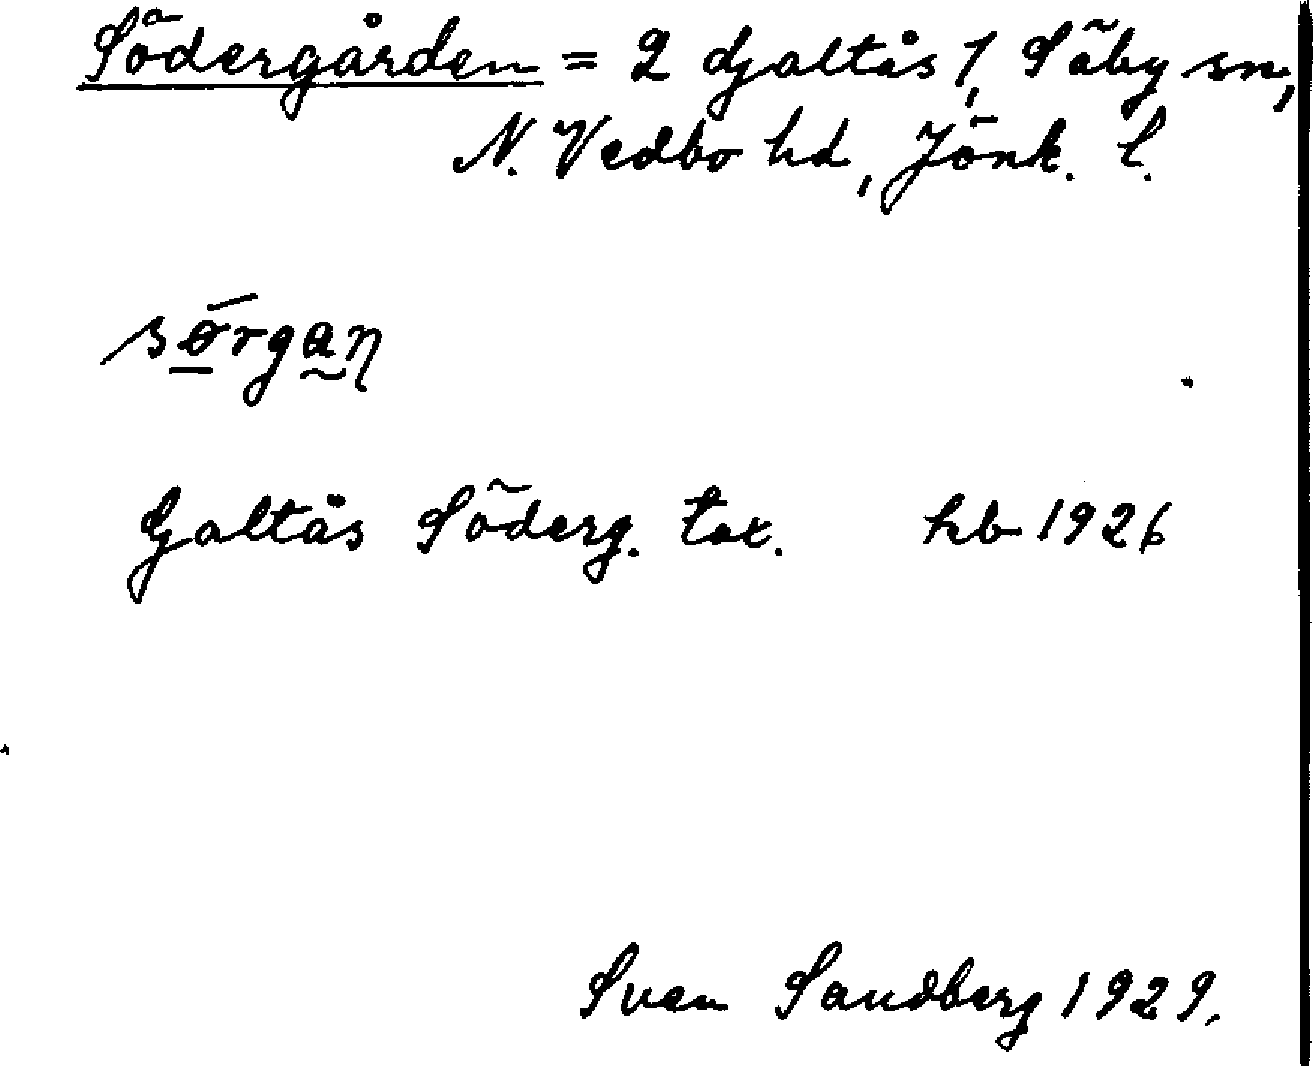 Södergården = 2 Galtås 1, Säby sn,
N. Vedbo hd, Jönk. l.
sörgan
Galtås Söderg. tax. hb 1926
Sven Sandberg 1929.